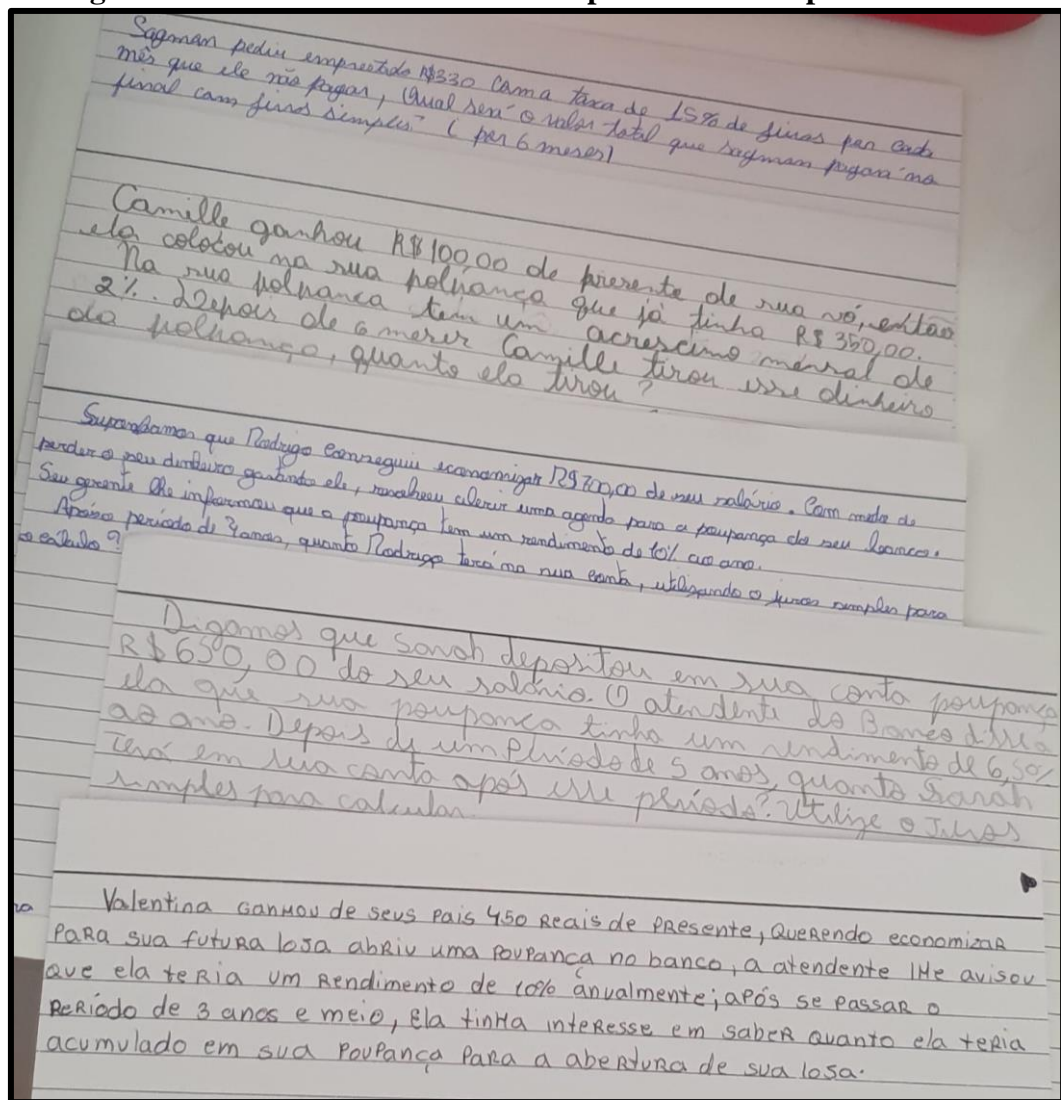 Sagman pediu emprestado R$330 com a taxa de 15% de juros por cada
mês que ele não pagar, Qual será o valor total que sagman pagará no
final com juros simples? (per 6 meses)
Camille ganhou R$100,00 de presente de sua vó, então
ela colocou na sua poupança que já tinha R$ 350,00.
Na sua poupança tem um acrescimo mensal de
2%. Depois de 6 meses Camille tirou esse dinheiro
da poupança, quanto ela tirou?
Suponhamos que Rodrigo conseguiu economizar R$700,00 de seu salário. Com medo de
perder o seu dinheiro gastando ele, resolveu abrir uma agenda para a poupança do seu banco.
Seu gerente lhe informou que a poupança tem um rendimento de 10% ao ano.
Após o período de anos, quanto Rodrigo terá na sua conta, utilizando o juros simples para
o calculo?
Digamos que Sarah depositou em sua conta poupança
R$ 650,00 do seu salário. O atendente do Banco disse a
ela que sua poupança tinha um rendimento de 6,50%
ao ano. Depois de um período de 5 anos, quanto Sarah
Terá em sua conta após esse período? Utilize o Juros
simples para calcular.
ra
Valentina GANHOU de seus pais 450 Reais de PResente, QueRendo economizaR
PaRa sua futuRa losa abRiu uma POUPança no banco, a atendente lHe avisou
que ela teRia um Rendimento de 10% anualmente; aPós se Passar o
PeRíodo de 3 anos e meio, Ela tinHa inteResse em sabeR Quanto ela teRia
acumulado em sua POUPança PaRa a abeRtuRa de sua losa.